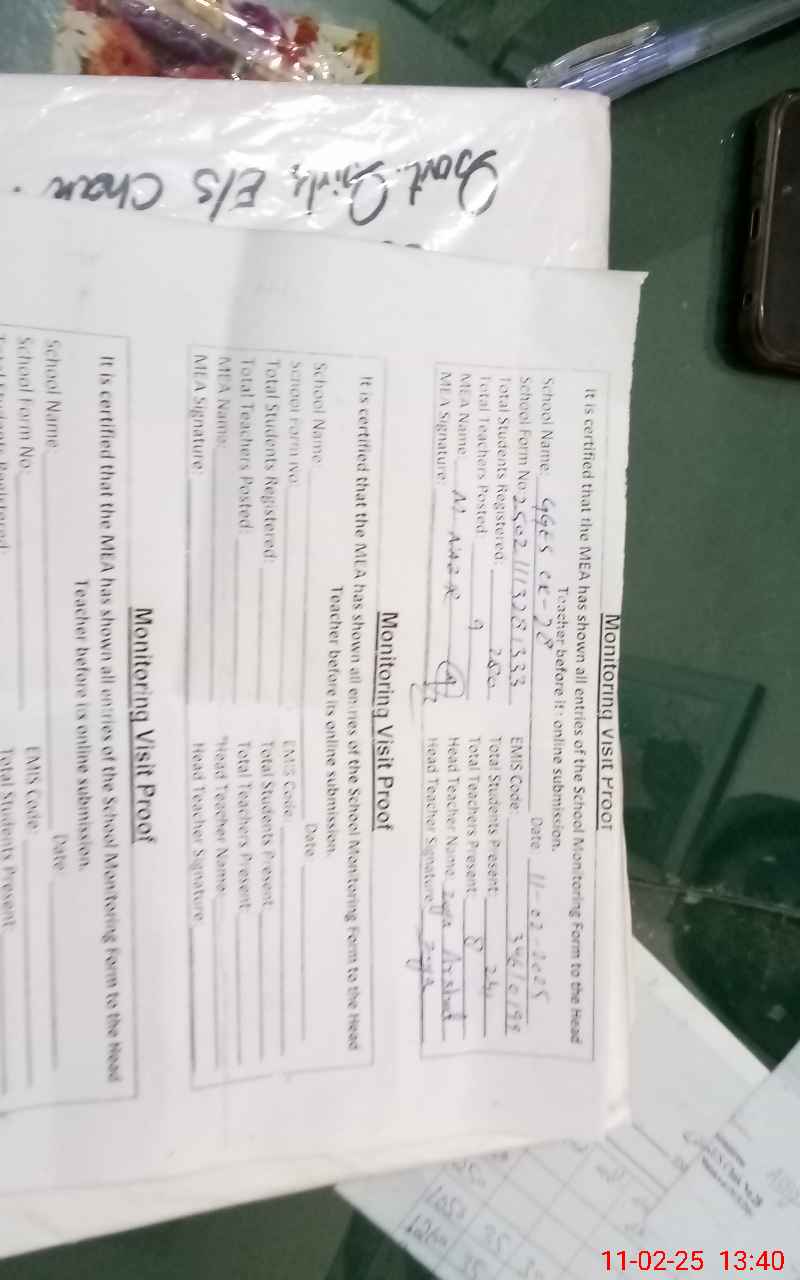 Govt. Girls E/S Chak
Monitoring Visit Proof
It is certified that the MEA has shown all entries of the School Monitoring Form to the Head
Teacher before it's online submission.
School Name: GGES CK-28 Date: 11-02-2025
School Form No: 25021113281333 EMIS Code:
Total Students Registered: 280 Total Students Present:
Total Teachers Posted: 9 Total Teachers Present: 8
MEA Name Head Teacher Name Zoya Arshad
MEA Signature: Head Teacher Signature Zoya
Monitoring Visit Proof
It is certified that the MEA has shown all entries of the School Monitoring Form to the Head
Teacher before its online submission.
School Name Date
School Form No: EMIS Code:
Total Students Registered: Total Students Present:
Total Teachers Posted: Total Teachers Present:
MEA Name: Head Teacher Name:
MEA Signature: Head Teacher Signature:
Monitoring Visit Proof
It is certified that the MEA has shown all entries of the School Monitoring Form to the Head
Teacher before its online submission.
School Name Date
School Form No: EMIS Code:
Total Students Registered: Total Students Present
11-02-25 13:40